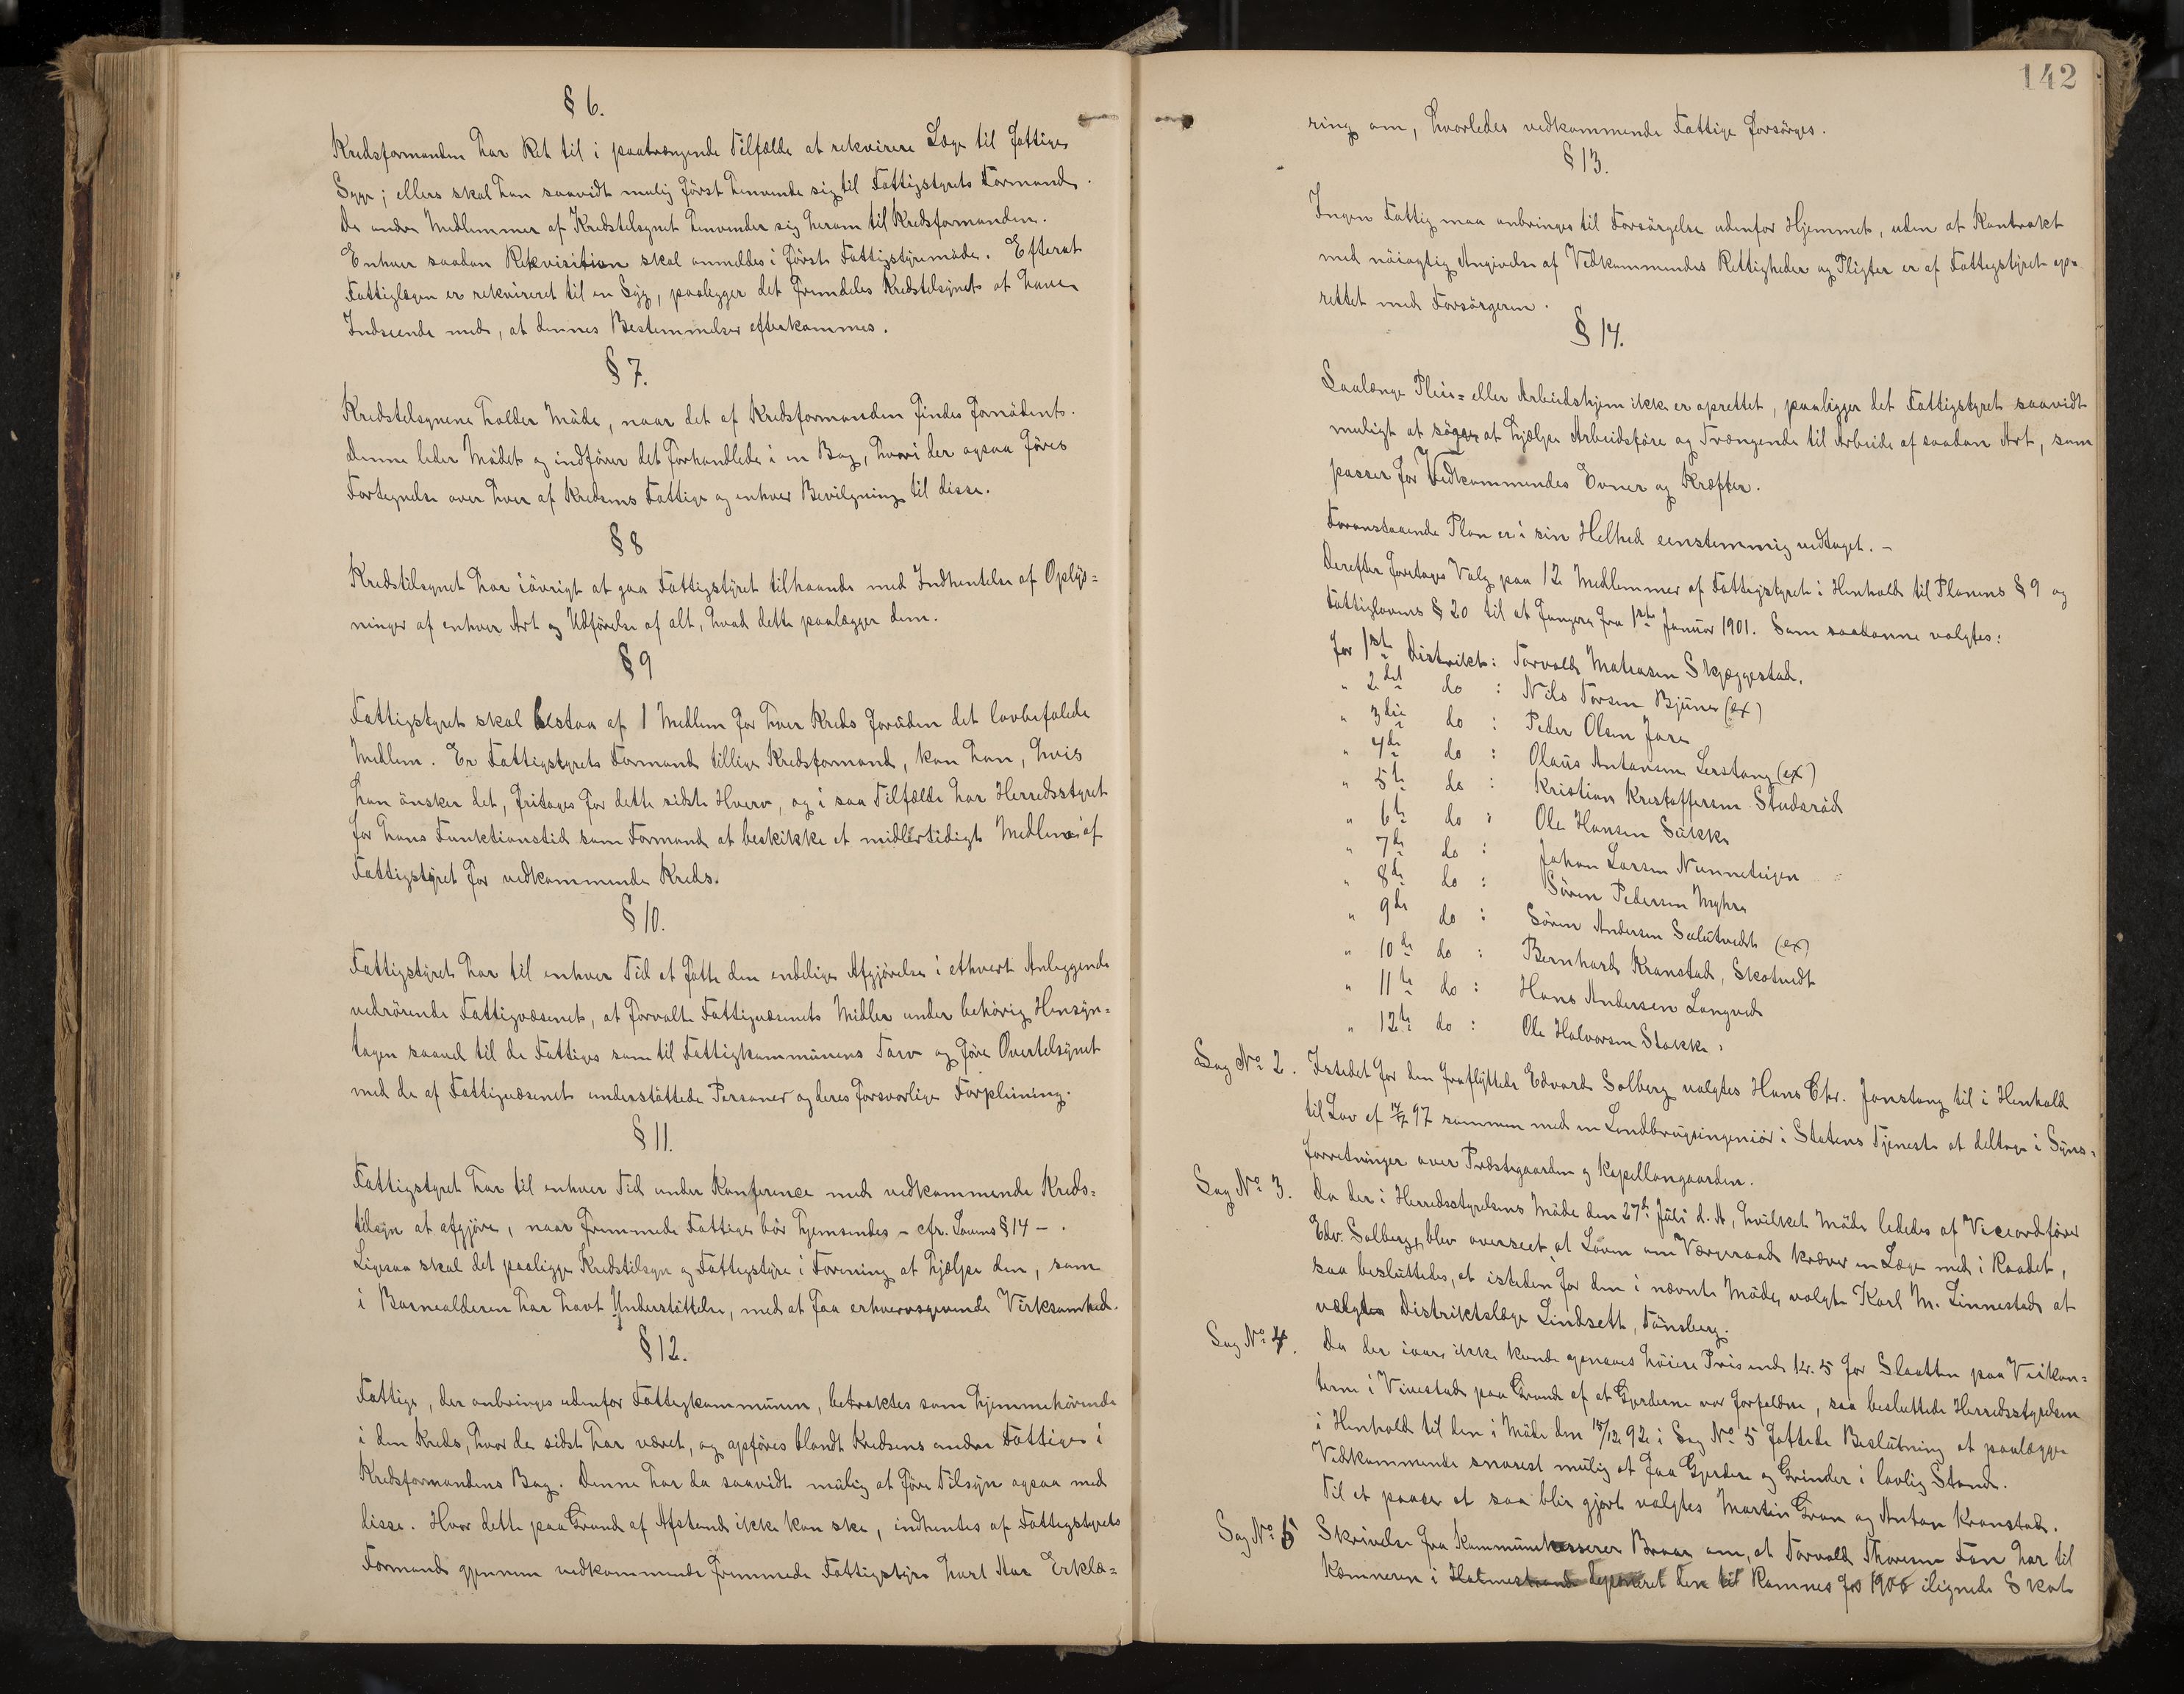 § 6.
Kredsformanden har Ret til i paatrængende Tilfælde at rekvirere Læge til fattige
Syge; ellers skal han saavidt mulig først henvende sig til Fattigstyrets Formand.
De andre Medlemmer af Kredstilsynet henvender sig herom til Kredsformanden.
Enhver saadan Rekvisition skal anmeldes i første Fattigstyremøde. Efterat
Fattiglægen er rekvireret til en Syg, paaligger det fremdeles Kredstilsynet at have
Indseende med, at dennes Bestemmelser efterkommes.
§ 7.
Kredstilsynene holder Møde, naar det af Kredsformanden findes fornødent.
Denne leder Mødet og indfører det forhandlede i en Bog, hvori der ogsaa føres
Fortegnelse over hver af Kredsens Fattige og enhver Bevilgning til disse.
§ 8
Kredstilsynet har iøvrigt at gaa Fattigstyret tilhaande med Indhentelse af Oplys=
ninger af enhver Art og Udførelse af alt, hvad dette paalægger dem.
§ 9
Fattigstyret skal bestaa af 1 Medlem for hver Kreds foruden det lovbefalede
Medlem. Er Fattigstyrets Formand tillige Kredsformand, kan han, hvis
han ønsker det, fritages for dette sidste Hverv, og i saa Tilfælde har Herredsstyret
for hans Funktionstid som Formand at beskikke et midlertidigt Medlem af
Fattigstyret for vedkommende Kreds.
§ 10.
Fattigstyret har til enhver Tid at fatte den endelige Afgjørelse i ethvert Anliggende
vedrørende Fattigvæsenet, at forvalte Fattigvæsenets Midler under behørig Hensyn=
tagen saavel til de Fattiges som til Fattigkommunens Tarv og føre Overtilsynet
med de af Fattigvæsenet understøttede Personer og deres forsvarlige Forpleining.
§ 11.
Fattigstyret har til enhver Tid under Konference med vedkommende Kreds=
tilsyn at afgjøre, naar fremmede Fattige bør hjemsendes – cfr. Lovens § 14 – .
Ligesaa skal det paaligge Kredstilsyn og Fattigstyre i Forening at hjælpe den, som
i Barnealderen har havt Understøttelse, med at faa erhvervsgivende Virksomhed.
§ 12.
Fattige, der anbringes udenfor Fattigkommunen, betraktes som hjemmehørende
i den Kreds, hvor de sidst har været, og opføres blandt Kredsens andre Fattige i
Kredsformandens Bog. Denne har da saavidt mulig at føre Tilsyn ogsaa med
disse. Hvor dette paa Grund af Afstand ikke kan ske, indhentes af Fattigstyrets
Formand gjennem vedkommende fremmede Fattigstyre hvert Aar Erklæ=
142
ring om, hvorledes vedkommende Fattige forsørges.
§ 13.
Ingen Fattig maa anbringes til Forsørgelse udenfor Hjemmet, uden at Kontrakt
med nøiagtig Angivelse af Vedkommendes Rettigheder og Pligter er af Fattigstyret op=
rettet med Forsørgeren.
§ 14.
Saalænge Pleie= eller Arbeidshjem ikke er oprettet, paaligger det Fattigstyret saavidt
muligt at søge at hjælpe Arbeidsføre og Trængende til Arbeide af saadan Art, som
passer for Vedkommendes Evner og Kræfter.
Foranstaaende Plan er i sin Helhed eenstemmig vedtaget. –
Derefter foretages Valg paa 12 Medlemmer af Fattigstyret i Henhold til Planens § 9 og
Fattiglovens § 20 til at fungere fra 1ste Januar 1901. Som saadanne valgtes:
for 1ste Distrikt: Torvald Mathiasen Skjæggestad.
" 2det do : Nils Torsen Bjune (ex)
" 3die do : Peder Olsen Jare
" 4de do : Olaus Antonsen Lerstang (ex)
" 5te do : Kristian Kristoffersen Studsrød
" 6te do : Ole Hansen Sukke
" 7de do : Johan Larsen Nunneteigen
" 8de do : Søren Pedersen Myhre
" 9de do : Søren Andersen Sulutvedt (ex)
" 10de do : Bernhard Kranstad, Skotvedt
" 11te do : Hans Andersen Langved
" 12te do : Ole Halvorsen Stokke.
Sag No 2. Istedet for den fraflyttede Edvard Solberg valgtes Hans Chr. Jonstang til i Henhold
til Lov af 97 sammen med en Landbrugsingeniør i Statens Tjeneste at deltage i Syns=
forretninger over Præstegaarden og Kapellangaarden.
Sag No 3. Da der i Herredsstyrelsens Møde den 27de Juli d. A, hvilket Møde lededes af Viceordfører
Edv. Solberg, blev overseet, at Loven om Værgeraad kræver en Læge med i Raadet,
saa besluttedes, at isteden for den i nævnte Møde, valgte Karl M. Linnestad at
vælges Distriktslæge Lindsett, Tønsberg.
Sag No 4. Da der iaar ikke kunde opnaaes høiere Pris end Kr. 5 for Slaatten paa Veikan=
terne i Vivestad paa Grund af at Gjerderne var forfaldne, saa besluttede Herredsstyrelsen
i Henhold til den i Møde den 15/12 92 i Sag No 5 fattede Beslutning at paalægge
Vedkommende snarest mulig at faa Gjerder og Grinder i lovlig Stand.
Til at paase at saa blir gjort valgtes Martin Gran og Anton Kranstad.
Sag No 5 Skrivelse fra Kommunekasserer Braar om, at Torvald Thoresen Fon har til
Kæmneren i Holmestrand deponeret den til Ramnes for 1900 ilignede Skat